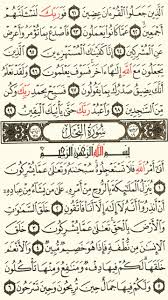 الَّذِينَ جَعَلُوا الْقُرْآنَ عِضِينَ ٩١ فَوَرَبِّكَ لَنَسْأَلَنَّهُمْ
أَجْمَعِينَ ٩٢ عَمَّا كَانُوا يَعْمَلُونَ ٩٣ فَاصْدَعْ بِمَا تُؤْمَرُ وَأَعْرِضْ
عَنِ الْمُشْرِكِينَ ٩٤ إِنَّا كَفَيْنَاكَ الْمُسْتَهْزِئِينَ ٩٥ الَّذِينَ
يَجْعَلُونَ مَعَ اللَّهِ إِلَٰهًا آخَرَ فَسَوْفَ يَعْلَمُونَ ٩٦ وَلَقَدْ
نَعْلَمُ أَنَّكَ يَضِيقُ صَدْرُكَ بِمَا يَقُولُونَ ٩٧ فَسَبِّحْ بِحَمْدِ رَبِّكَ وَكُنْ
مِنَ السَّاجِدِينَ ٩٨ وَاعْبُدْ رَبَّكَ حَتَّىٰ يَأْتِيَكَ الْيَقِينُ ٩٩
سُورَةُ النَّحْلِ
بِسْمِ اللَّهِ الرَّحْمَٰنِ الرَّحِيمِ
أَتَىٰ أَمْرُ اللَّهِ فَلَا تَسْتَعْجِلُوهُ سُبْحَانَهُ وَتَعَالَىٰ عَمَّا يُشْرِكُونَ ١
يُنَزِّلُ الْمَلَائِكَةَ بِالرُّوحِ مِنْ أَمْرِهِ عَلَىٰ مَنْ يَشَاءُ مِنْ عِبَادِهِ
أَنْ أَنْذِرُوا أَنَّهُ لَا إِلَٰهَ إِلَّا أَنَا فَاتَّقُونِ ٢ خَلَقَ السَّمَاوَاتِ
وَالْأَرْضَ بِالْحَقِّ تَعَالَىٰ عَمَّا يُشْرِكُونَ ٣ خَلَقَ الْإِنْسَانَ
مِنْ نُطْفَةٍ فَإِذَا هُوَ خَصِيمٌ مُبِينٌ ٤ وَالْأَنْعَامَ
خَلَقَهَا لَكُمْ فِيهَا دِفْءٌ وَمَنَافِعُ وَمِنْهَا تَأْكُلُونَ ٥
وَلَكُمْ فِيهَا جَمَالٌ حِينَ تُرِيحُونَ وَحِينَ تَسْرَحُونَ ٦